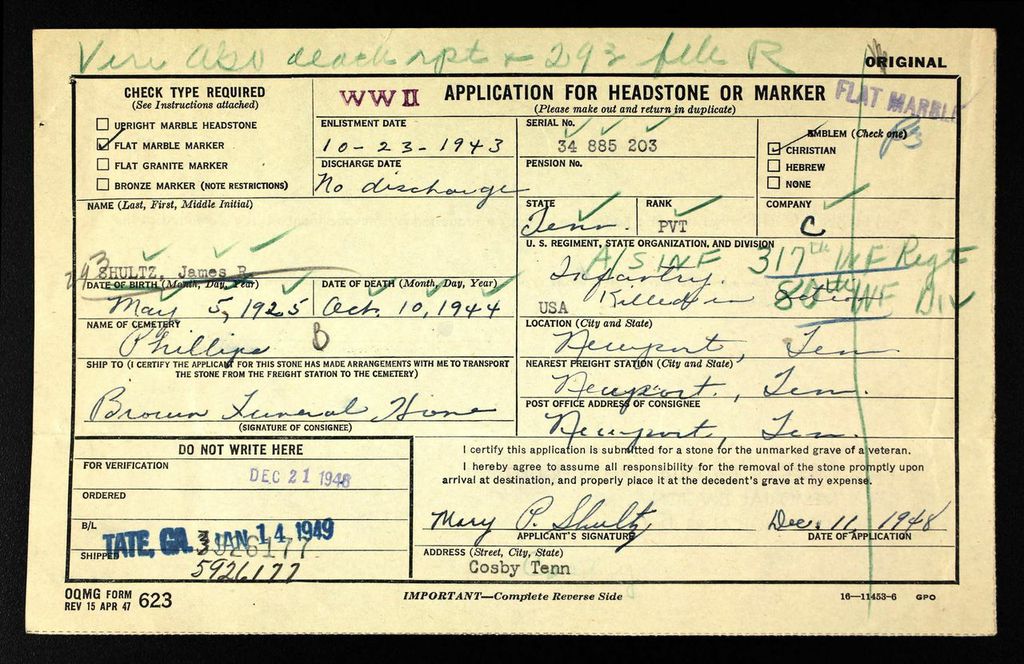 Veri Also death rpt + 293 file R
ORIGINAL
CHECK TYPE REQUIRED
(See Instructions attached)
UPRIGHT MARBLE HEADSTONE
FLAT MARBLE MARKER
FLAT GRANITE MARKER
BRONZE MARKER (NOTE RESTRICTIONS)
WW II APPLICATION FOR HEADSTONE OR MARKER
(Please make out and return in duplicate)
FLAT MARBLE
ENLISTMENT DATE
10-23-1943
DISCHARGE DATE
No discharge
SERIAL No.
34 885 203
PENSION No.
EMBLEM (Check one)
CHRISTIAN
HEBREW
NONE
NAME (Last, First, Middle Initial)
SHULTZ, James R.
293
STATE
Tenn.
RANK
PVT
COMPANY
C
U. S. REGIMENT, STATE ORGANIZATION, AND DIVISION
A/S INF 317th INF Regt
Infantry.
Killed in Action
80th INF DIV
USA
DATE OF BIRTH (Month, Day, Year)
May 5, 1925
DATE OF DEATH (Month, Day, Year)
Oct. 10, 1944
NAME OF CEMETERY
Phillips B
LOCATION (City and State)
Newport, Ten
SHIP TO (I CERTIFY THE APPLICANT FOR THIS STONE HAS MADE ARRANGEMENTS WITH ME TO TRANSPORT
THE STONE FROM THE FREIGHT STATION TO THE CEMETERY)
Brown Funeral Home
(SIGNATURE OF CONSIGNEE)
NEAREST FREIGHT STATION (City and State)
Newport, Ten.
POST OFFICE ADDRESS OF CONSIGNEE
Newport, Ten.
DO NOT WRITE HERE
FOR VERIFICATION
DEC 21 1948
ORDERED
B/L
TATE, GA. JAN 14 1949
SHIPPED
5926177
I certify this application is submitted for a stone for the unmarked grave of a veteran.
I hereby agree to assume all responsibility for the removal of the stone promptly upon
arrival at destination, and properly place it at the decedent's grave at my expense.
Mary P. Shultz
APPLICANT'S SIGNATURE
Dec. 11, 1948
DATE OF APPLICATION
ADDRESS (Street, City, State)
Cosby Tenn
OQMG FORM
REV 15 APR 47 623
IMPORTANT—Complete Reverse Side
16—11453-6 GPO